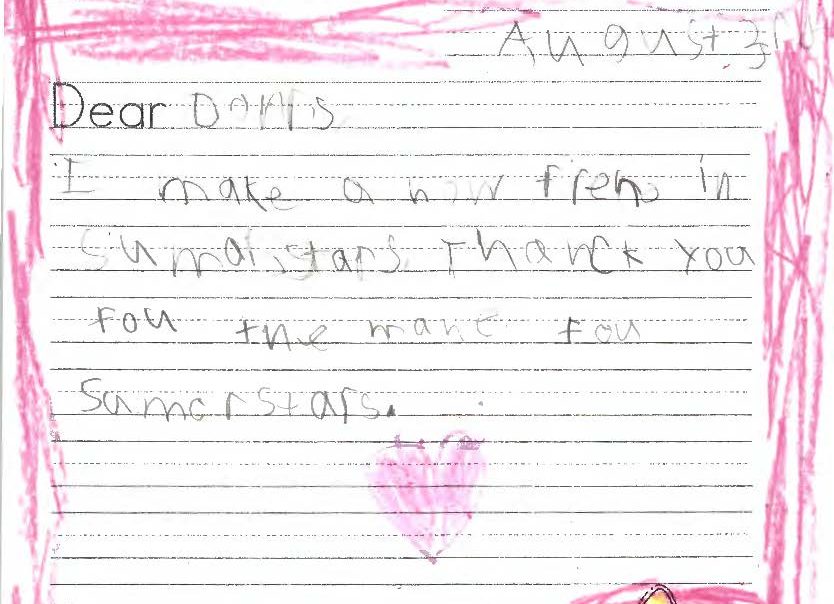 August 3rd
Dear
I make a now fren in
Sumarstars Thanck you
fou the mane fou
Sumerstars.